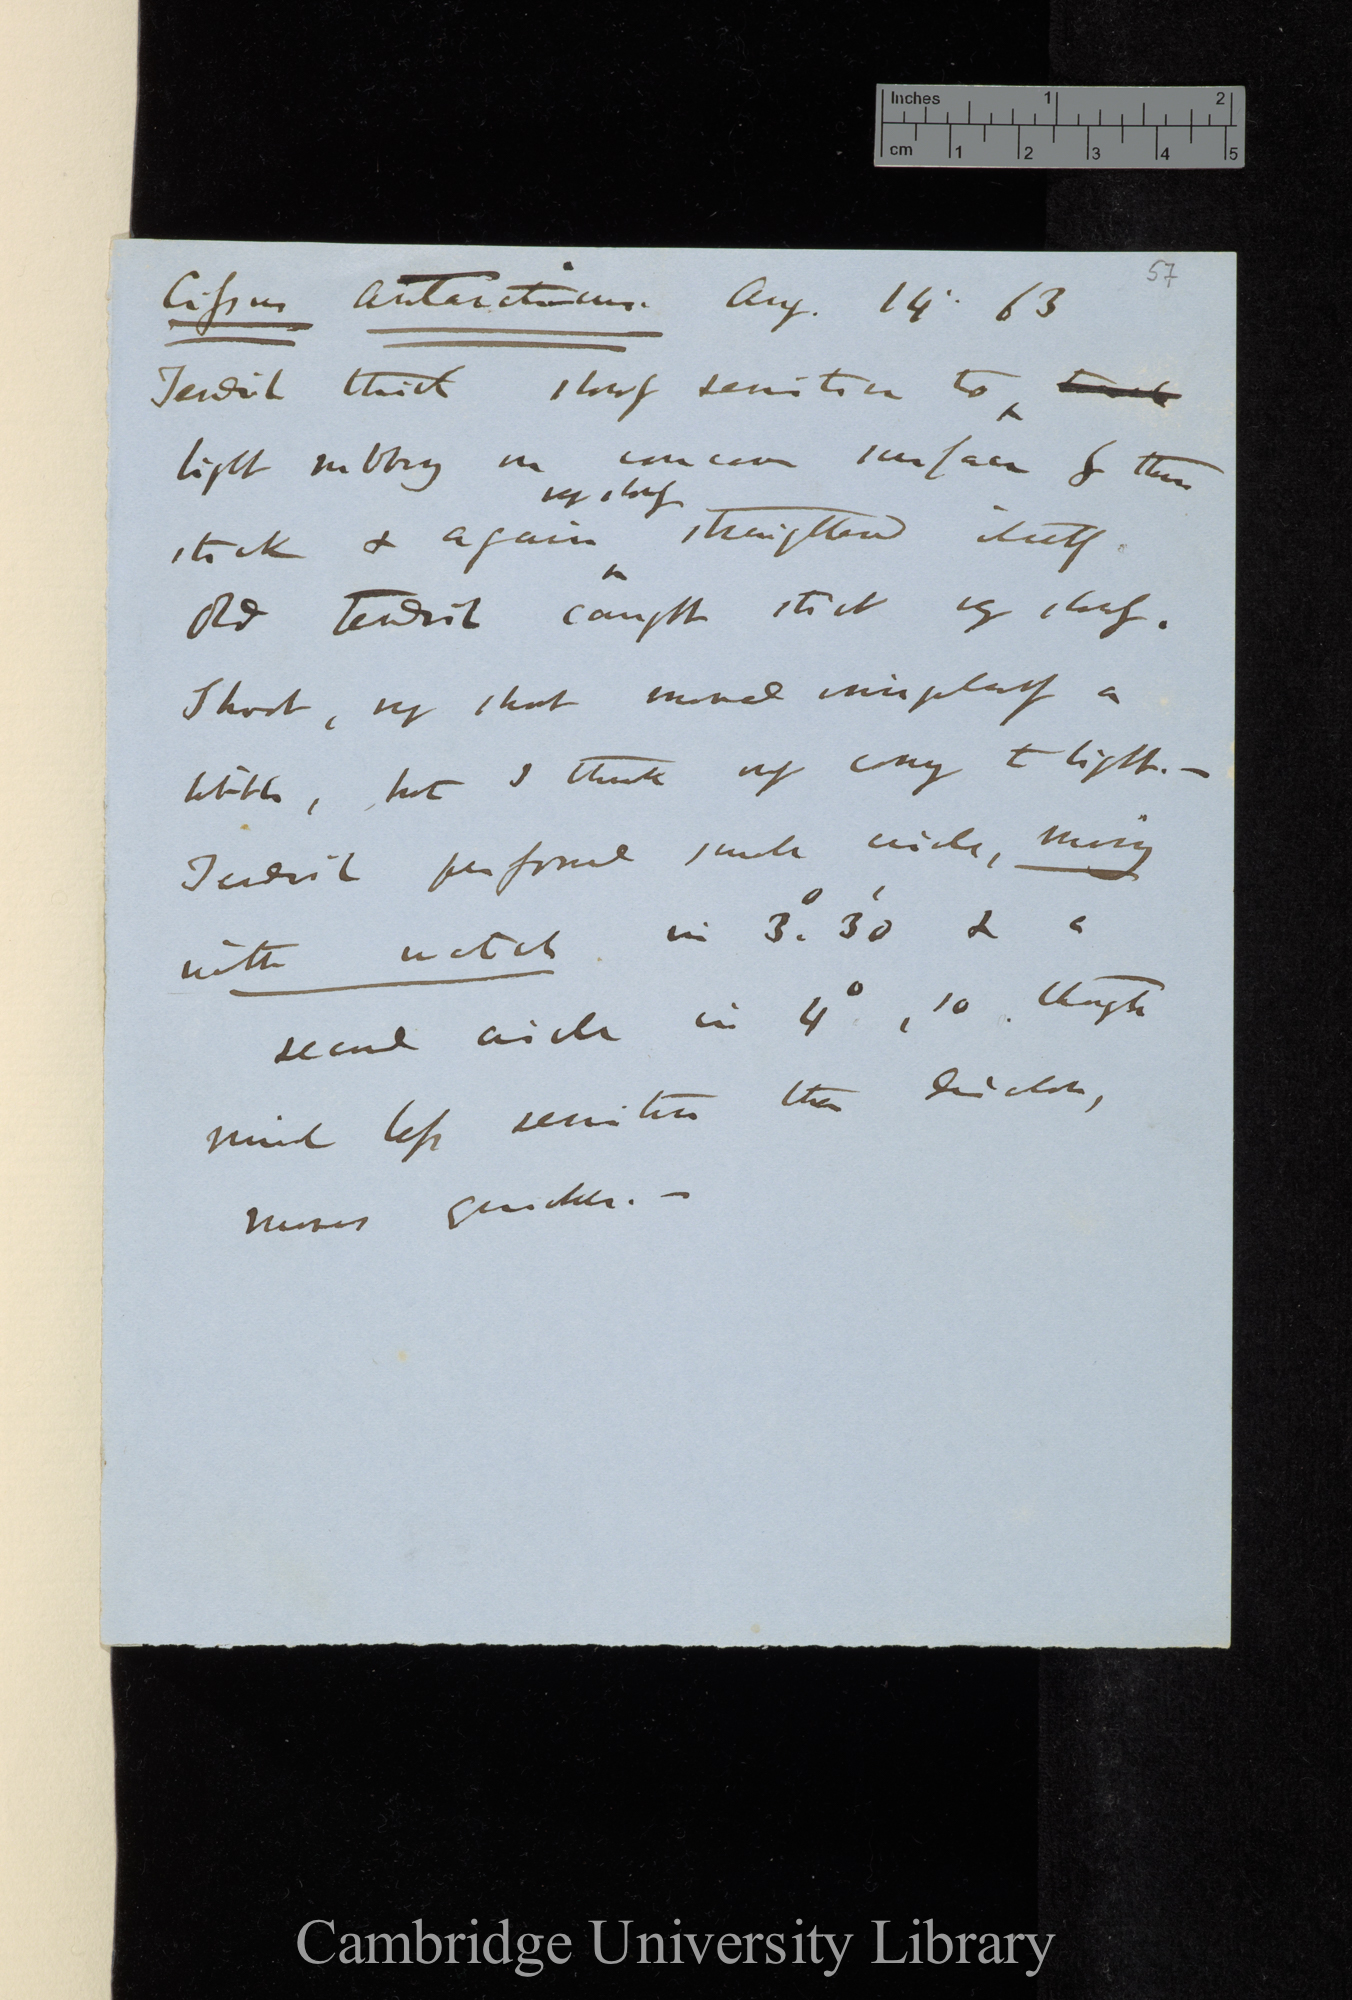 Inches 1 2
cm 1 2 3 4 5
57
Cissus Antarcticus. Aug. 14. 63
Tendril thick slowly sensitive to
light rubbing on concave surface & thin
vy slowly
stick & again straightened itself.
Old Tendril caught stick vy slowly.
Shoot, vy short moved irregularly a
little, but I think only owing to light. —
Tendril performed circle, moving
with watch in 3°. 30' & a
second circle in 4°, 10. though
much less sensitive than
moves quicker. —
Cambridge University Library